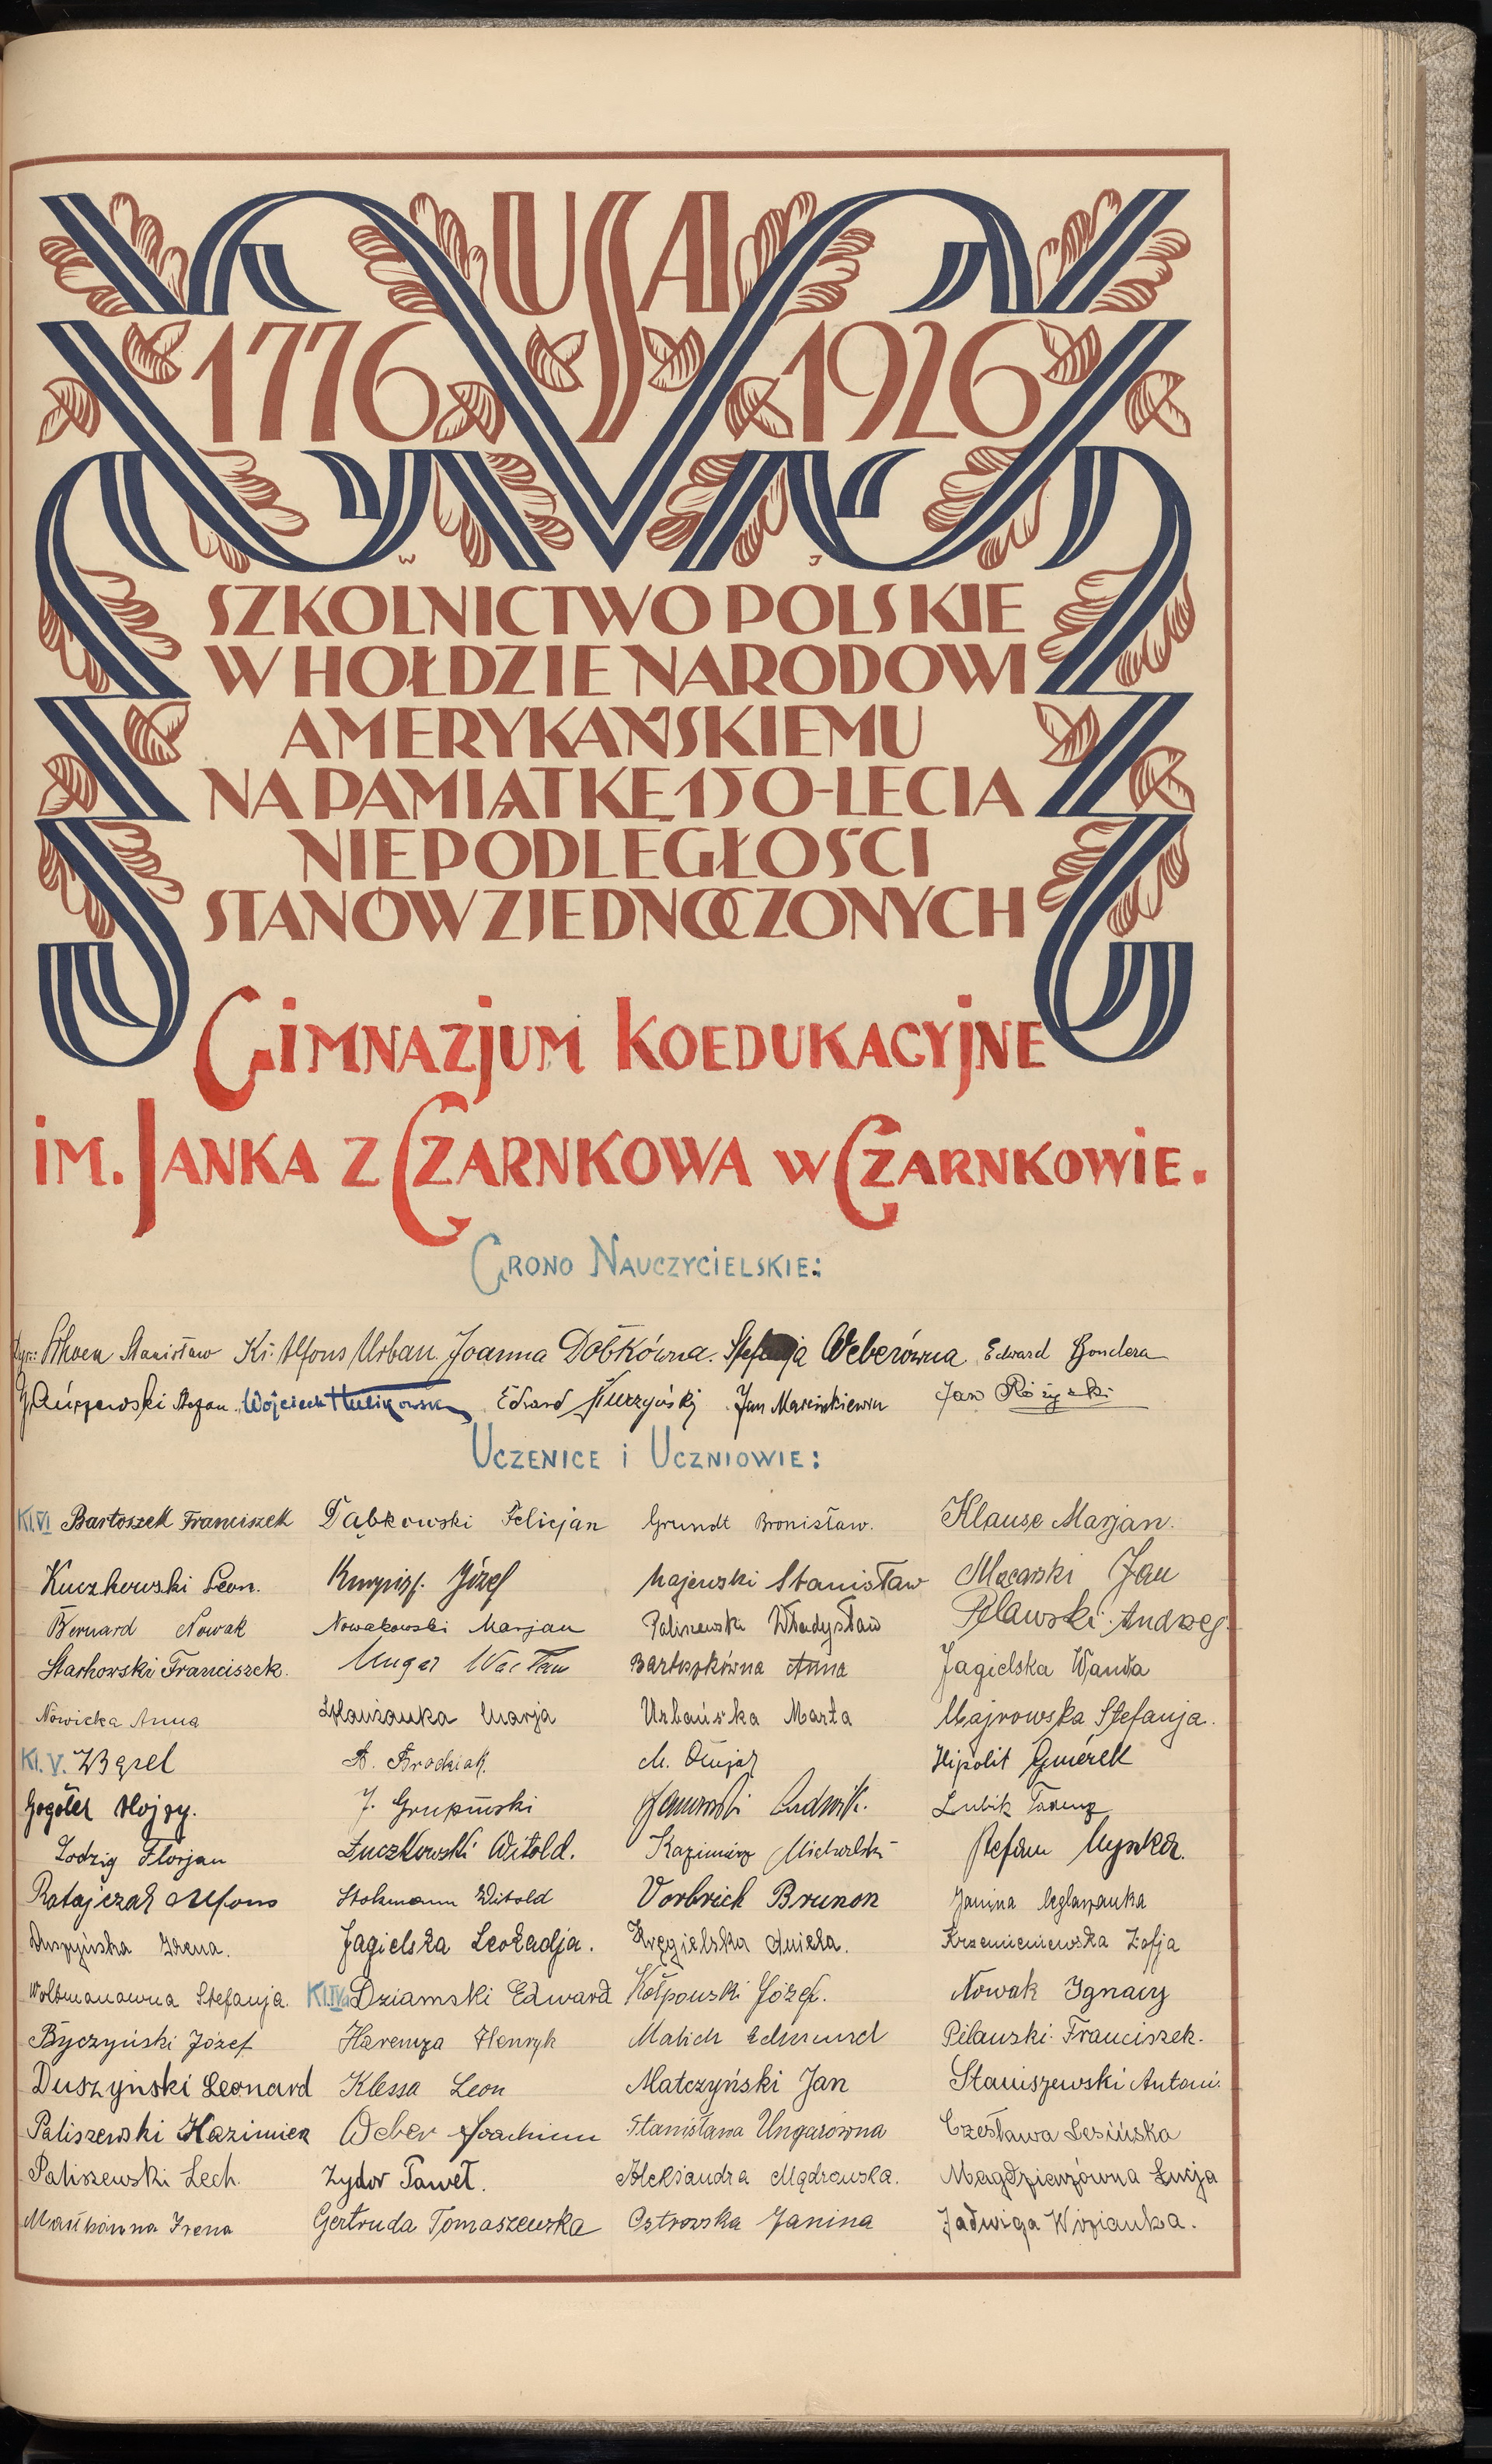 USA
1776 1926
W J
SZKOLNICTWO POLSKIE
W HOŁDZIE NARODOWI
AMERYKAŃSKIEMU
NA PAMIĄTKĘ 150-LECIA
NIEPODLEGŁOŚCI
STANÓW ZJEDNOCZONYCH
GIMNAZJUM KOEDUKACYJNE
IM. JANKA Z CZARNKOWA W CZARNKOWIE.
GRONO NAUCZYCIELSKIE:
Stanisław Ks. Alfons Urban. Joanna Dobkówna. Stefanja Weberówna Edward Gondera
Stefan. Wojciech Hulikowski Edward Jan Marcinkiewicz Jan Różycki
UCZENICE i UCZNIOWIE:
Kl. VI Bartoszek Franciszek Dąbkowski Felicjan Grundt Bronisław. Klause Marjan.
Kuczkowski Leon. Józef Majewski Stanisław Macarski Jan
Bernard Nowak Nowakowski Marjan Paliszewski Władysław Pilawski Andrzej
Starkowski Franciszek. Ungar Wacław Bartoszkówna Anna Jagielska Wanda
Nowicka Anna Marja Urbańska Marta Majrowska Stefanja.
Kl. V. Z Bąpel A. Brodziak. M. Hipolit Gmerek
Gogółek Alojzy. J. Grupiński Janowski Ludwik. Lubik
Zodzig Florjan Łuczkowski Witold. Kazimierz Michalski Stefan
Ratajczak Alfons Stokmann Witold Vorbrich Brunon Janina
Duszyńska Irena. Jagielska Leokadja. Kręgielska Aniela. Krzemieniewska Zofja
Woltmanowna Stefanja. Kl. IVa Dziamski Edward Kołpowski Józef. Nowak Ignacy
Byczyński Józef Haremza Henryk Malich Edmund Pilawski Franciszek.
Duszyński Leonard Klessa Leon Matczyński Jan Staniszewski Antoni.
Paliszewski Kazimierz Weber Joachim Stanisława Ungarówna Czesława Lesińska
Paliszewski Lech. Zydor Paweł. Aleksandra Mądrowska. Magdziarzówna Łucja
Mańkówna Irena Gertruda Tomaszewska Ostrowska Janina Jadwiga Wozianka.